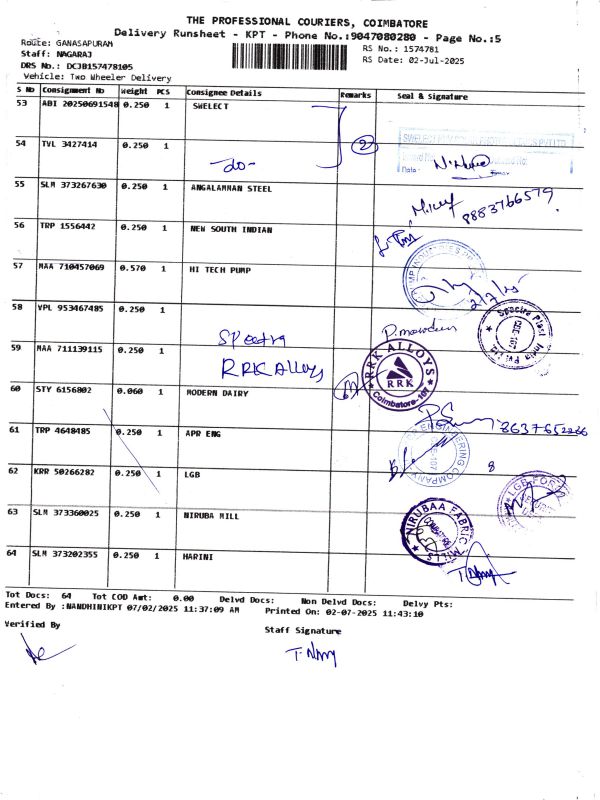 THE PROFESSIONAL COURIERS, COIMBATORE
Delivery Runsheet - KPT - Phone No.:9047080280 - Page No.:5
Route: GANASAPURAM
RS No.: 1574781
Staff: NAGARAJ
RS Date: 02-Jul-2025
DRS No.: DCJB157478105
Vehicle: Two Wheeler Delivery
S No Consignment No Weight PCS Consignee Details Remarks Seal & Signature
53 ABI 20250691548 0.250 1 SWELECT
2
54 TVL 3427414 0.250 1
-do-
55 SLM 373267630 0.250 1 ANGALAMMAN STEEL
8883766579
56 TRP 1556442 0.250 1 NEW SOUTH INDIAN
57 MAA 710457069 0.570 1 HI TECH PUMP
2/7/25
58 VPL 953467485 0.250 1
Spectra
Spectra Plast India Pvt. Ltd.
59 MAA 711139115 0.250 1
RRK Alloys
RRK ALLOYS
RRK
Coimbatore-107
60 STY 6156802 0.060 1 MODERN DAIRY
8637652286
61 TRP 4648485 0.250 1 APR ENG
ENGINEERING COMPANY
62 KRR 50266282 0.250 1 LGB
8
LGB FORGE
63 SLM 373360025 0.250 1 NIRUBA MILL
NIRUBAA FABRIC MILLS
64 SLM 373202355 0.250 1 HARINI
Tot Docs: 64 Tot COD Amt: 0.00 Delvd Docs: Non Delvd Docs: Delvy Pts:
Entered By :NANDHINIKPT 07/02/2025 11:37:09 AM Printed On: 02-07-2025 11:43:10
Verified By
Staff Signature